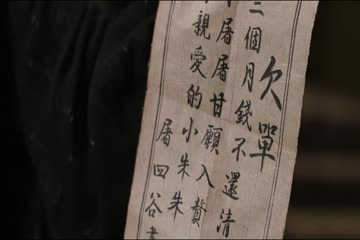 欠單
三個月錢不還清
屠屠甘願入贅
親愛的小朱朱
屠四谷書